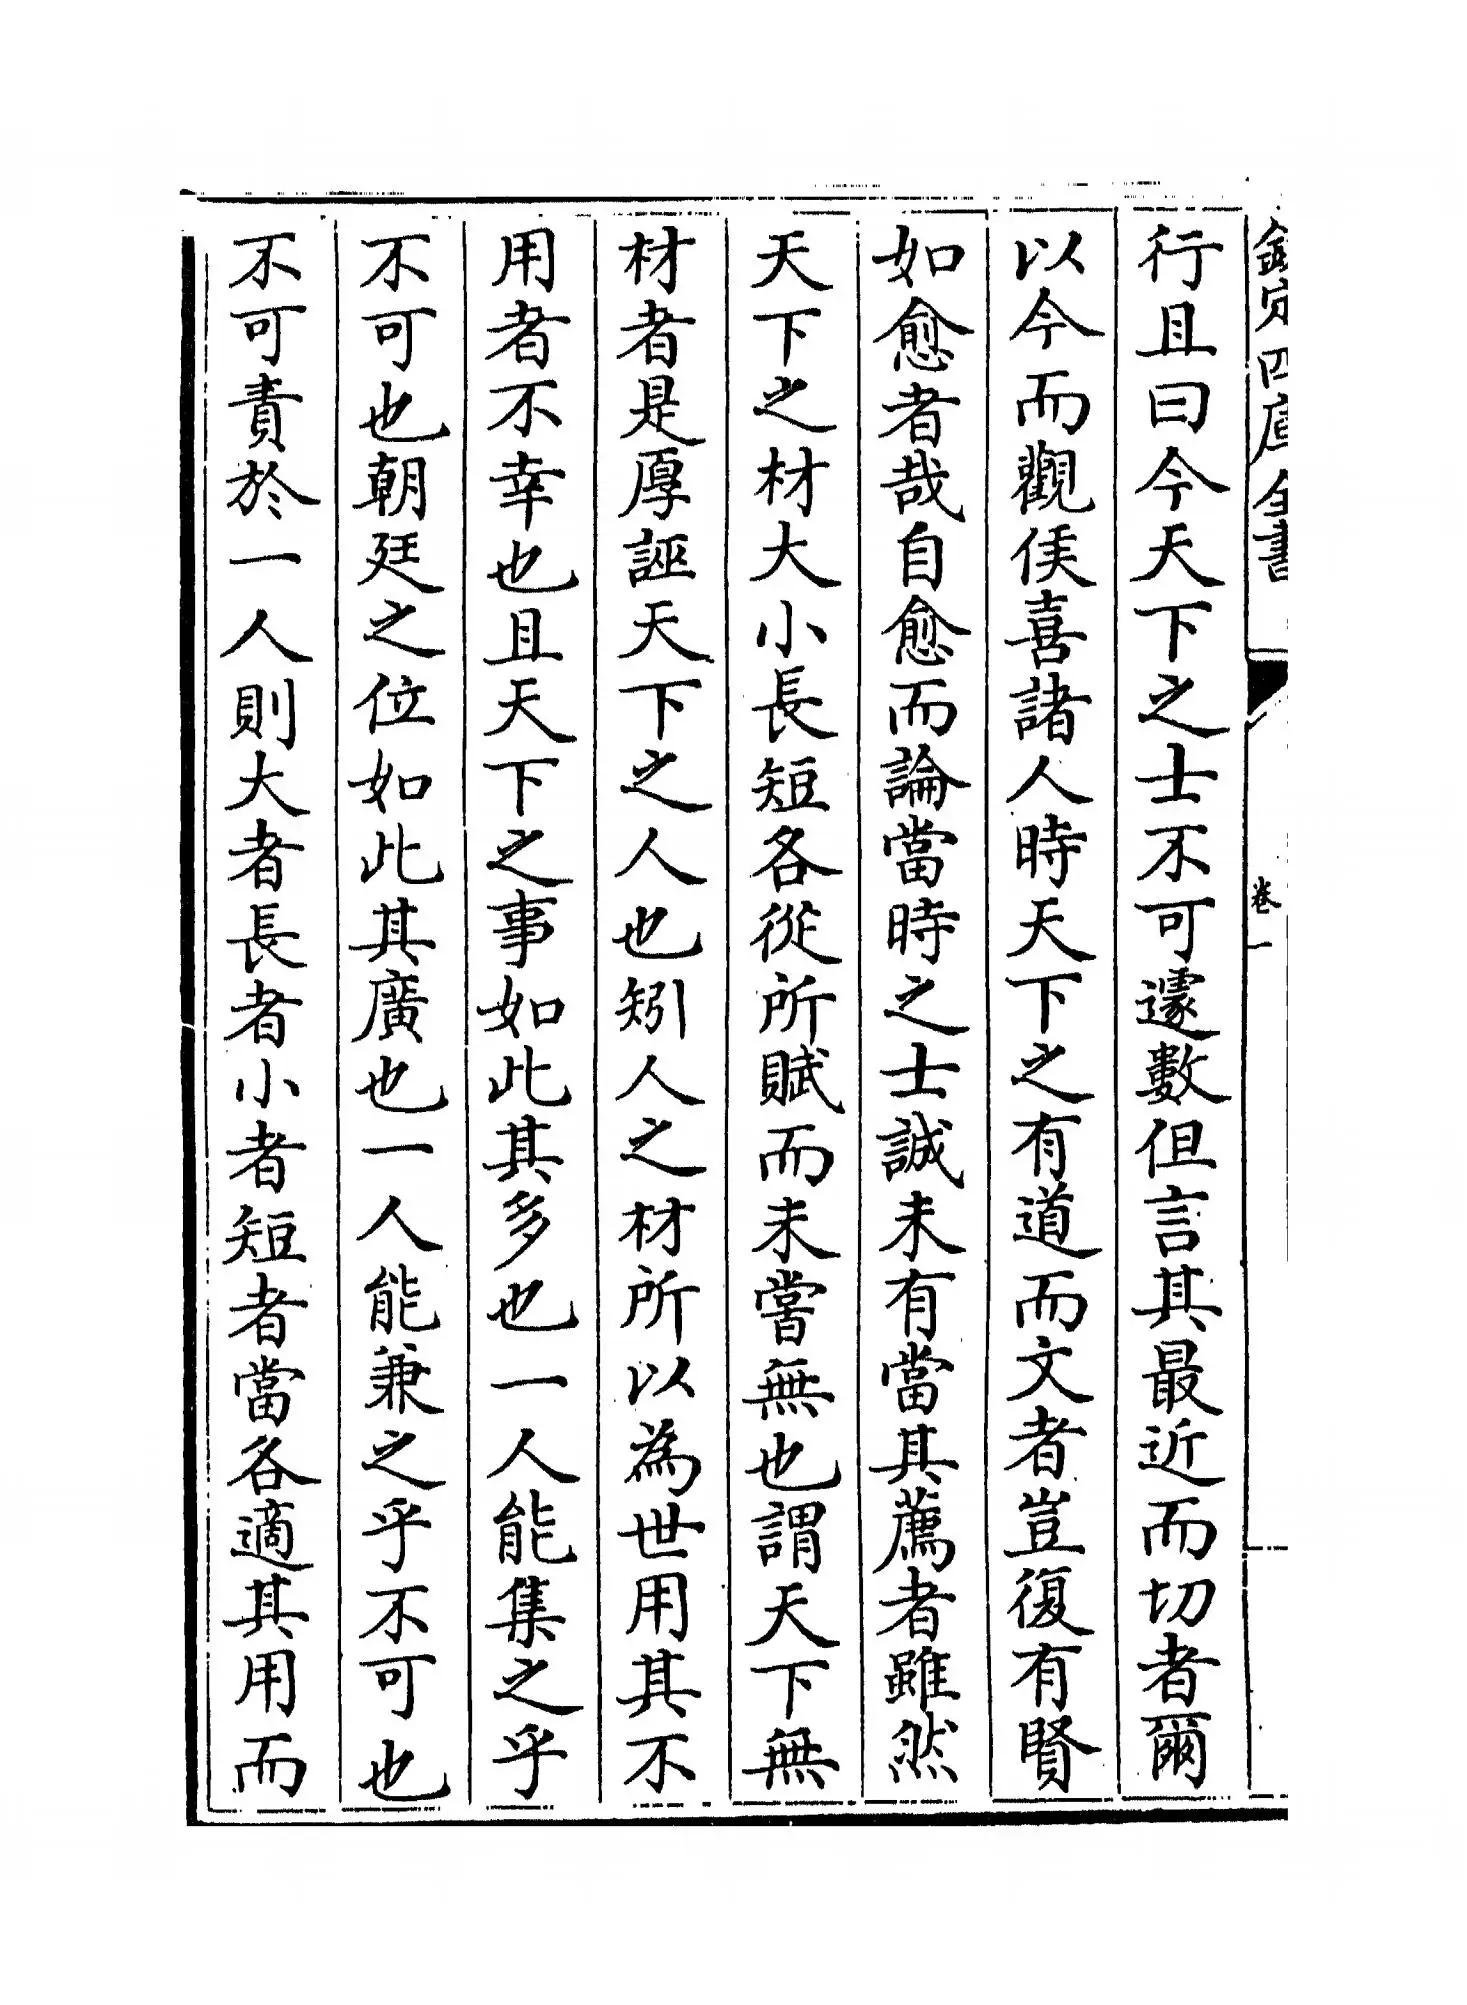 欽定四庫全書
卷一
行且曰今天下之士不可遽數但言其最近而切者爾
以今而觀侯喜諸人時天下之有道而文者豈復有賢
如愈者哉自愈而論當時之士誠未有當其薦者雖然
天下之材大小長短各從所賦而未嘗無也謂天下無
材者是厚誣天下之人也矧人之材所以為世用其不
用者不幸也且天下之事如此其多也一人能集之乎
不可也朝廷之位如此其廣也一人能兼之乎不可也
不可責於一人則大者長者小者短者當各適其用而